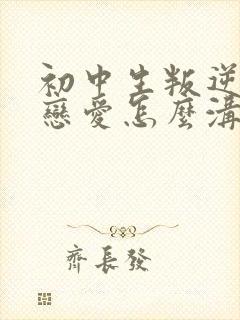 初中生叛逆
戀愛怎麼溝
齊長發